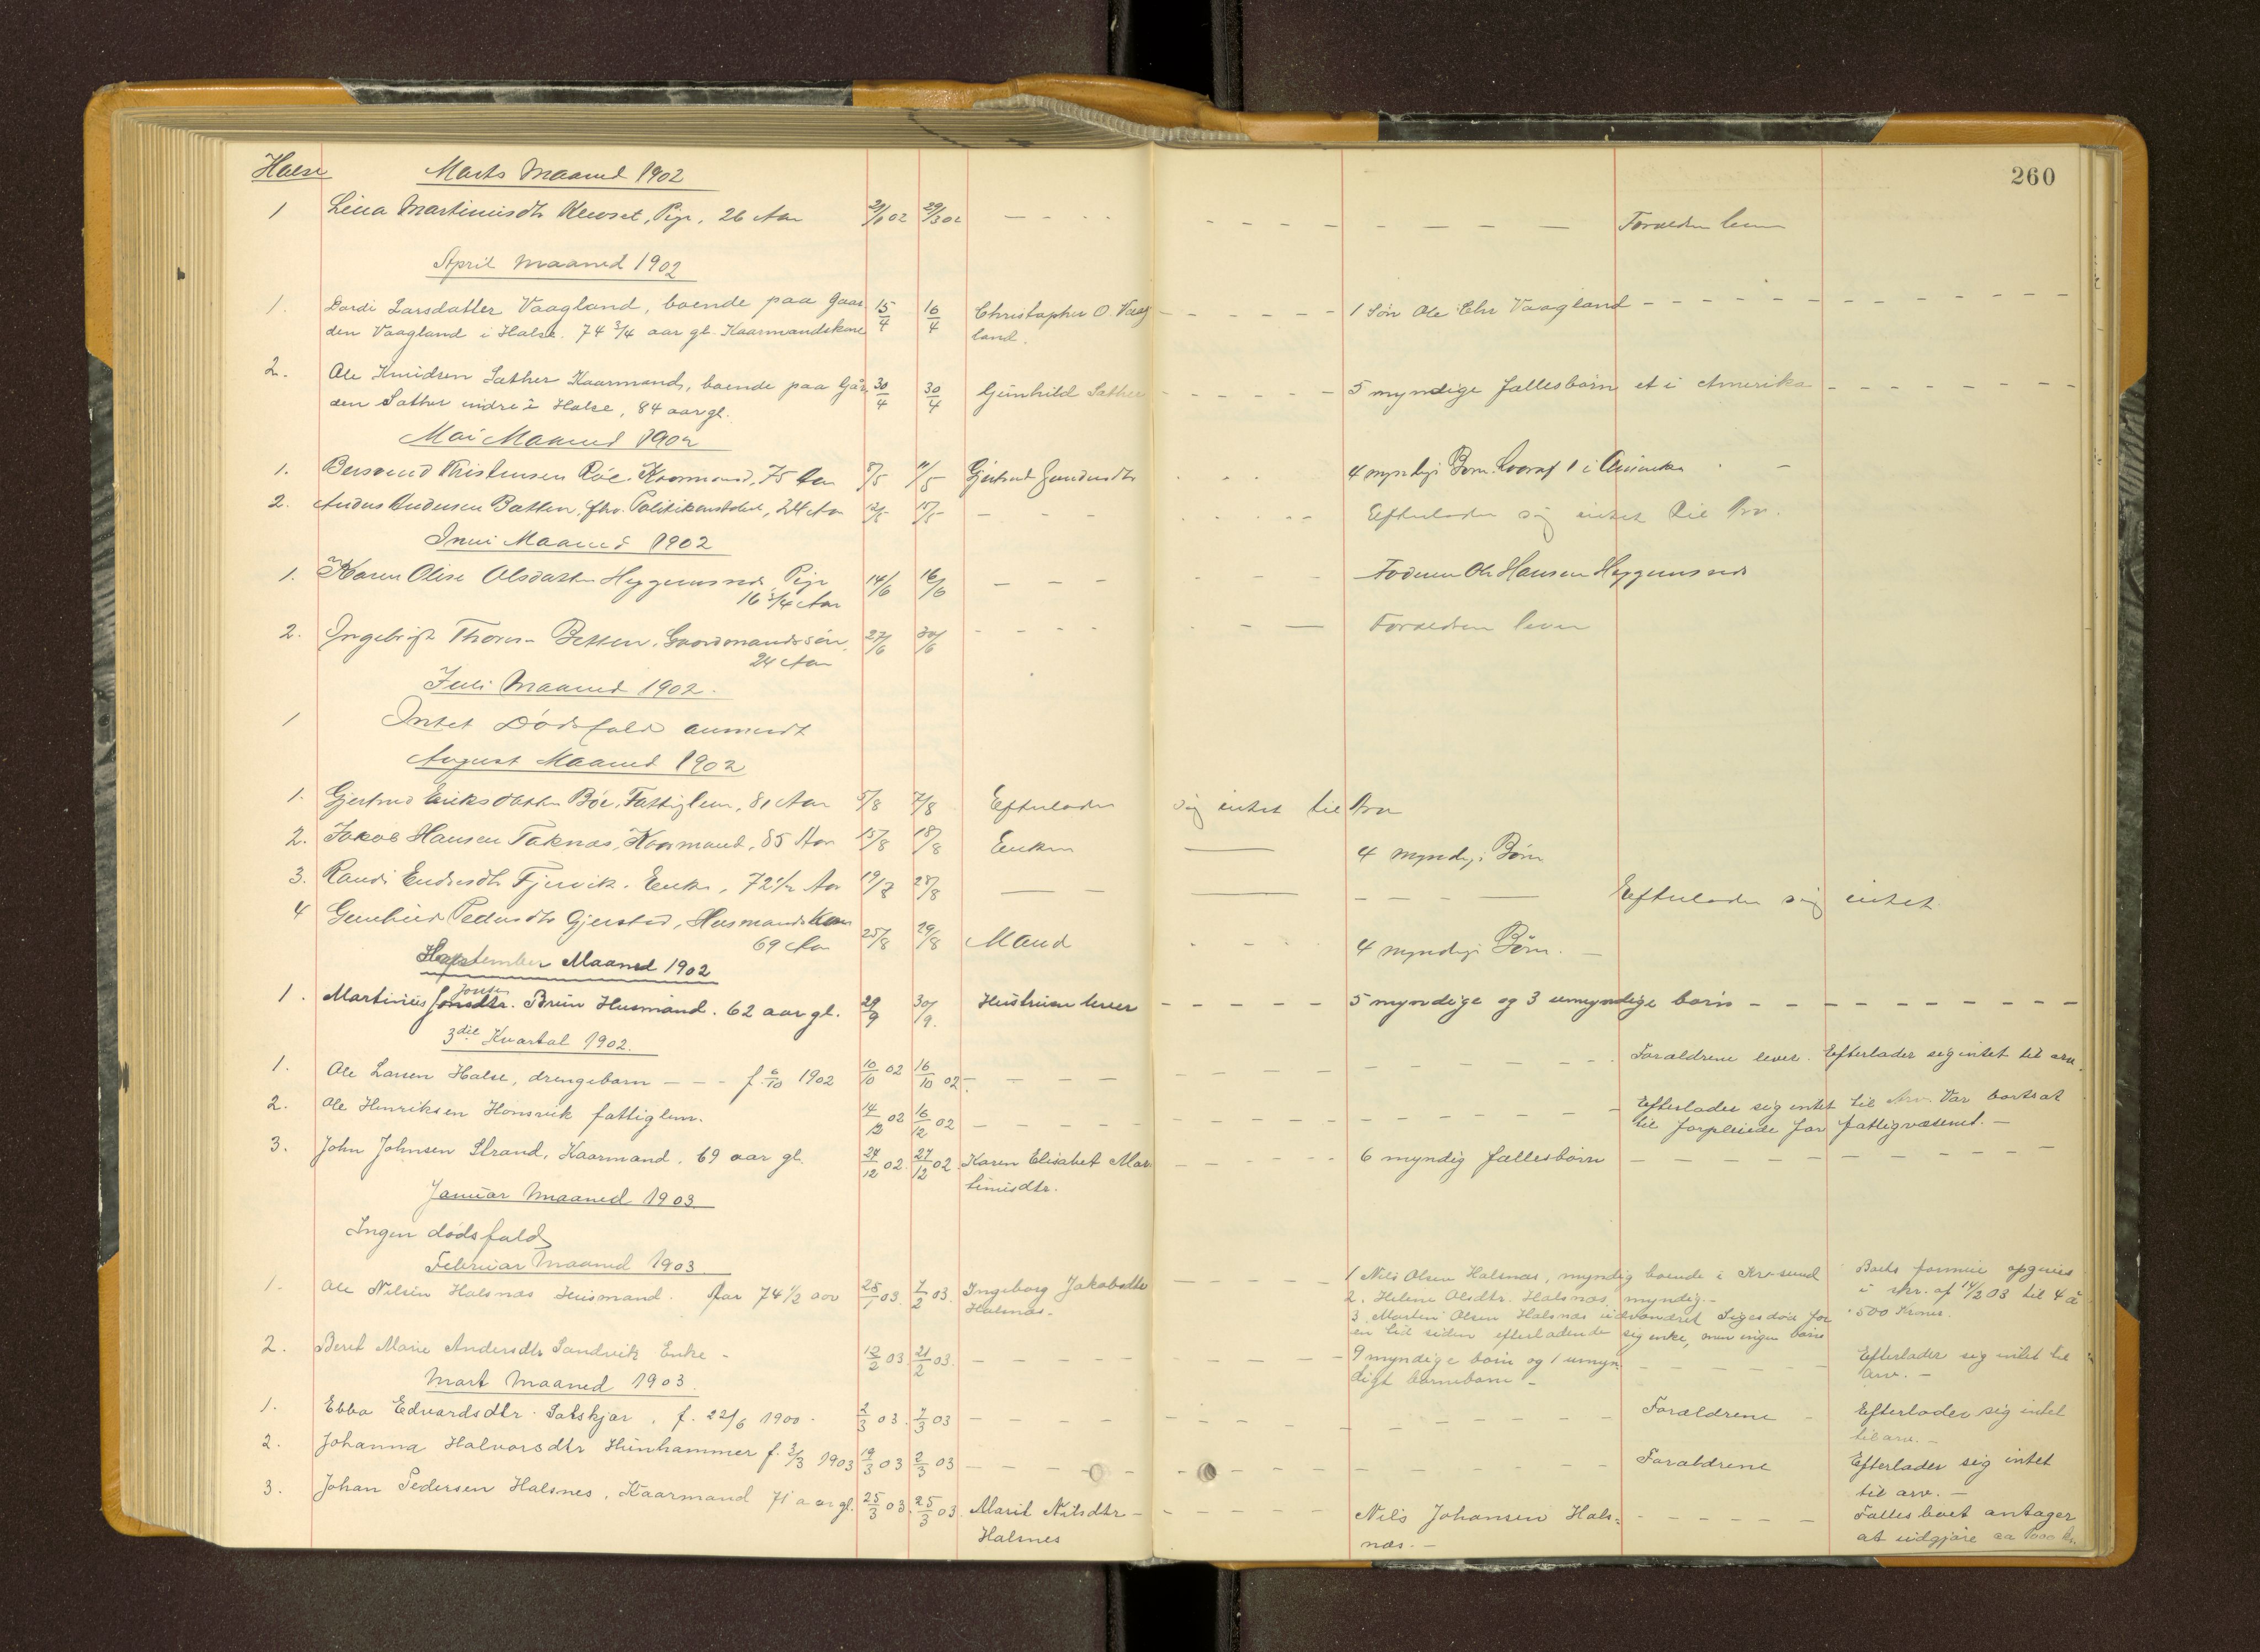 260
Halse Marts Maaned 1902
1 Lina Martinusdtr Kleuset, Pige, 26 Aar 29/3 02 — — — — Forældre lever
April Maaned 1902
1. Lardi Larsdatter Vaagland, boende paa Gaar 15/4 16/4 Christopher O. Vaag — — — 1 Søn Ole Chr Vaagland — — —
den Vaagland i Halse. 74 3/4 aar gl. Kaarmandskone land.
2. Ole Knudsen Sæther Kaarmand, boende paa Går 30/4 30/4 Gunhild Sæther — — — 5 myndige fællesbørn et i Amerika — — —
den Sæther indre i Halse, 84 aar gl.
Mai Maaned 1902
1. Kristensen Bøe. Kaarmand, 75 Aar 8/5 11/5 Gjertrud 4 myndige Børn hvoraf 1 i Amerika —
2. Anders Andersen Botten, fhv. Politikonstabel, 24 Aar 12/5 15/5 — — — Efterlader sig intet til Arv.
Juni Maaned 1902
1. Karen Olise Olsdatter Heggemsnes Pige 14/6 16/6 — — — Faderen Ole Hansen Heggemsnes
16 3/4 Aar
2. Ingebrigt Betten. Gaardmandssøn, 27/6 30/6 — — — Forældrene lever
24 Aar
Juli Maaned 1902.
1 Intet Dødsfald anmeldt
August Maaned 1902
1. Gjertrud Eriksdatter Bøe, Fattiglem, 81 Aar 5/8 7/8 Efterlader sig intet til Arv
2. Jakob Hansen Taknæs, Kaarmand, 85 Aar 15/8 18/8 Enken — 4 myndige Børn
3. Randi Endresdtr Fjervik. Enke, 72 1/2 Aar 19/8 28/8 — — — Efterlader sig intet
4 Gunhild Pedersdtr Gjersted, Husmandskone 25/8 29/8 Mand 4 myndige Børn. —
69 Aar
September Maaned 1902
Jonsen
1. Martinus Jonsdtr. Brun Husmand. 62 aar gl. 29/9 30/9. Hustruen lever — — — 5 myndige og 3 umyndige børn — — —
3die Kvartal 1902.
1. Ole Larsen Halse, drengebarn — — — f. 6/10 1902 10/10 02 16/10 02 — — — Forældrene lever. Efterlader sig intet til arv.
2. Ole Henriksen Honsvik fattiglem. 14/12 02 16/12 02 — — — Efterlader sig intet til Arv. Var bortsat
til forpleiede for fattigvæsenet. —
3. John Johnsen Strand, Kaarmand, 69 aar gl. 24/12 02. 27/12 02. Karen Elisabet Mar- — — — 6 myndig fællesbørn — — —
tinusdtr.
Januar Maaned 1903
Ingen dødsfald
Februar Maaned 1903
1. Ole Nilsen Halsnæs Husmand. 74 1/2 aar 28/1 03. 7/2 03. Ingeborg Jakobsdtr — — — 1 Nils Olsen Halsnæs, myndig boende i Kr.sund Boets formue opgives
Halsnæs. 2. Helene Olsdtr. Halsnæs, myndig. — i skr. af 14/2 03 til 4 à
3. Martin Olsen Halsnæs udvandret Siges død for 500 Kroner.
en tid siden efterladende sig enke, men ingen børn
2. Beret Marie Andersdtr Sandvik Enke — 12/2 03. 21/2 03. — — — 9 myndige børn og 1 umyn- — — — Efterlader sig intet til
digt barnebarn — arv. —
Mart Maaned 1903.
1. Ebba Edvardsdtr. Satskjær, f. 22/6 1900. 2/3 03. 7/3 03 — — — Forældrene — Efterlader sig intet
til arv. —
2. Johanna Halvorsdtr Hünhammer f. 3/3 1903 19/3 03 2/3 03 — — — Forældrene Efterlader sig intet
til arv. —
3. Johan Pedersen Halsnes, Kaarmand 71 aar gl. 25/3 03. 25/3 03. Marit Nilsdtr — — — Nils Johansen Hals- — — — Fælles boet antager
Halsnes næs. — at udgjøre ca 1000 kr.